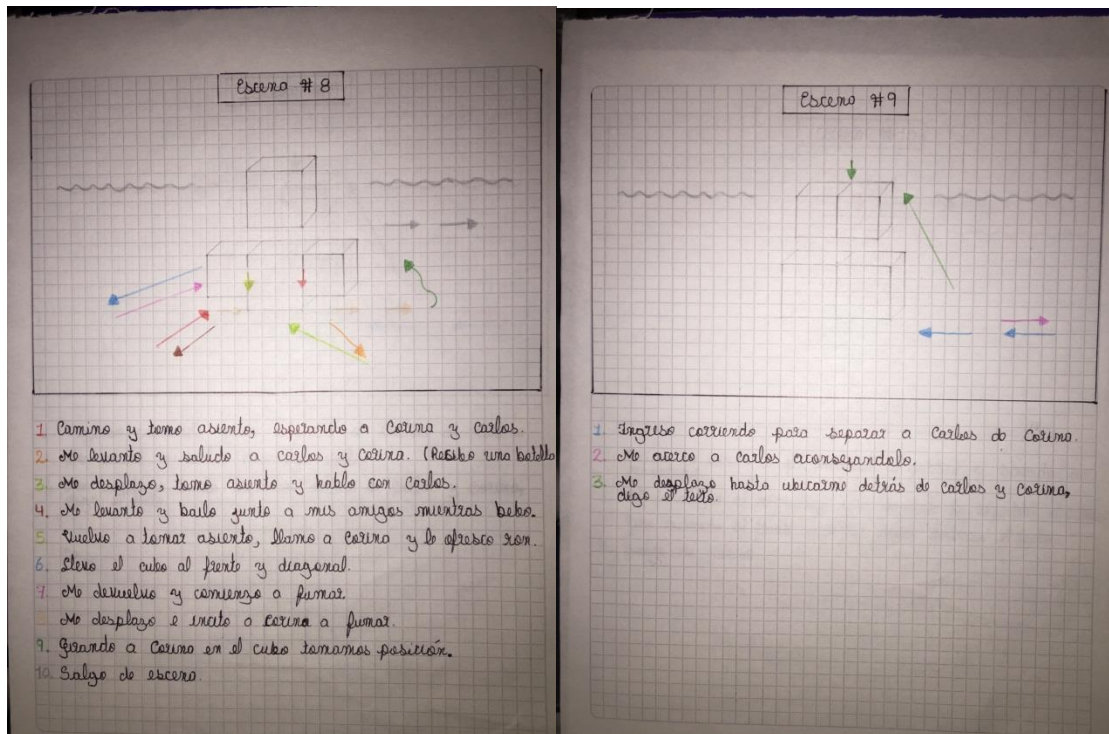 Escena # 8
1 Camino y tomo asiento, esperando a Corina y Carlos.
2. Me levanto y saludo a Carlos y Corina. (Recibo una botella
3. Me desplazo, tomo asiento y hablo con Carlos.
4. Me levanto y bailo junto a mis amigos mientras bebo.
5. Vuelvo a tomar asiento, llamo a Corina y le ofresco ron.
6. Llevo el cubo al frente y diagonal.
7. Me devuelvo y comienzo a fumar.
Me desplazo e incito a Corina a fumar.
9. Girando a Corina en el cubo tomamos posición.
10. Salgo de escena.
Escena #9
1. Ingreso corriendo para separar a Carlos de Corina.
2. Me acerco a Carlos aconsejandolo.
3. Me desplazo hasta ubicarme detrás de Carlos y Corina,
digo el texto.